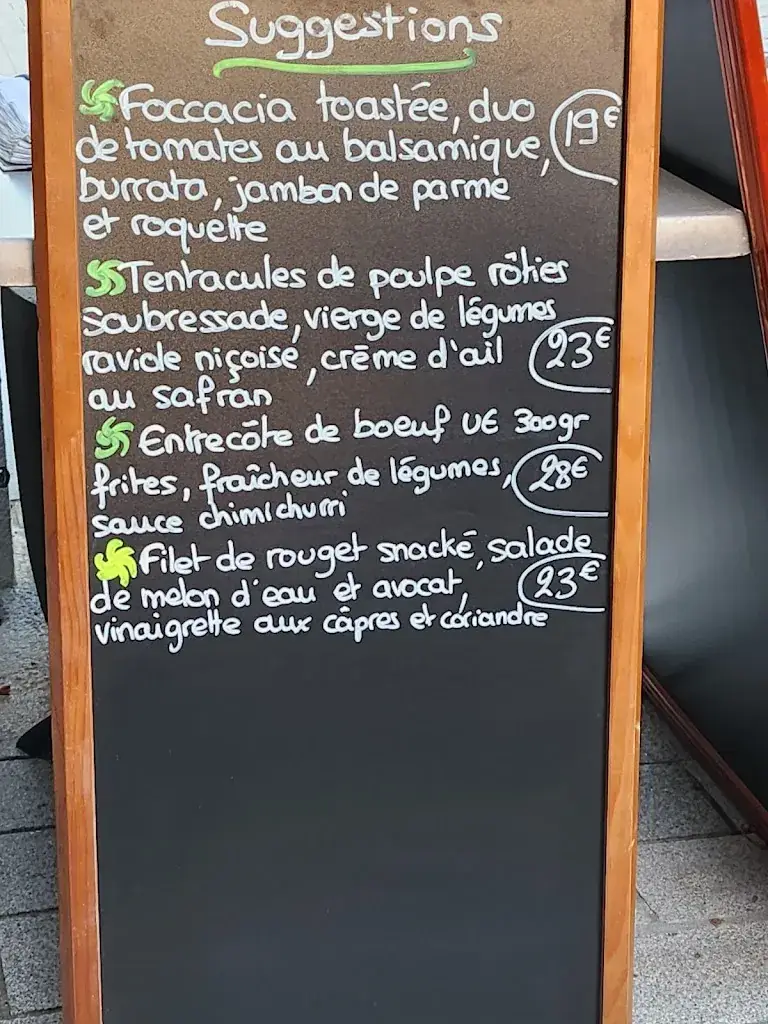 Suggestions
Foccacia toastée, duo
de tomates au balsamique, 19€
burrata, jambon de parme
et roquette
Tentacules de poulpe rôties
Soubressade, vierge de légumes
raviole niçoise, crème d'ail 23€
au safran
Entrecôte de boeuf UE 300gr
frites, fraîcheur de légumes, 28€
sauce chimichurri
Filet de rouget snacké, salade
de melon d'eau et avocat, 23€
vinaigrette aux câpres et coriandre